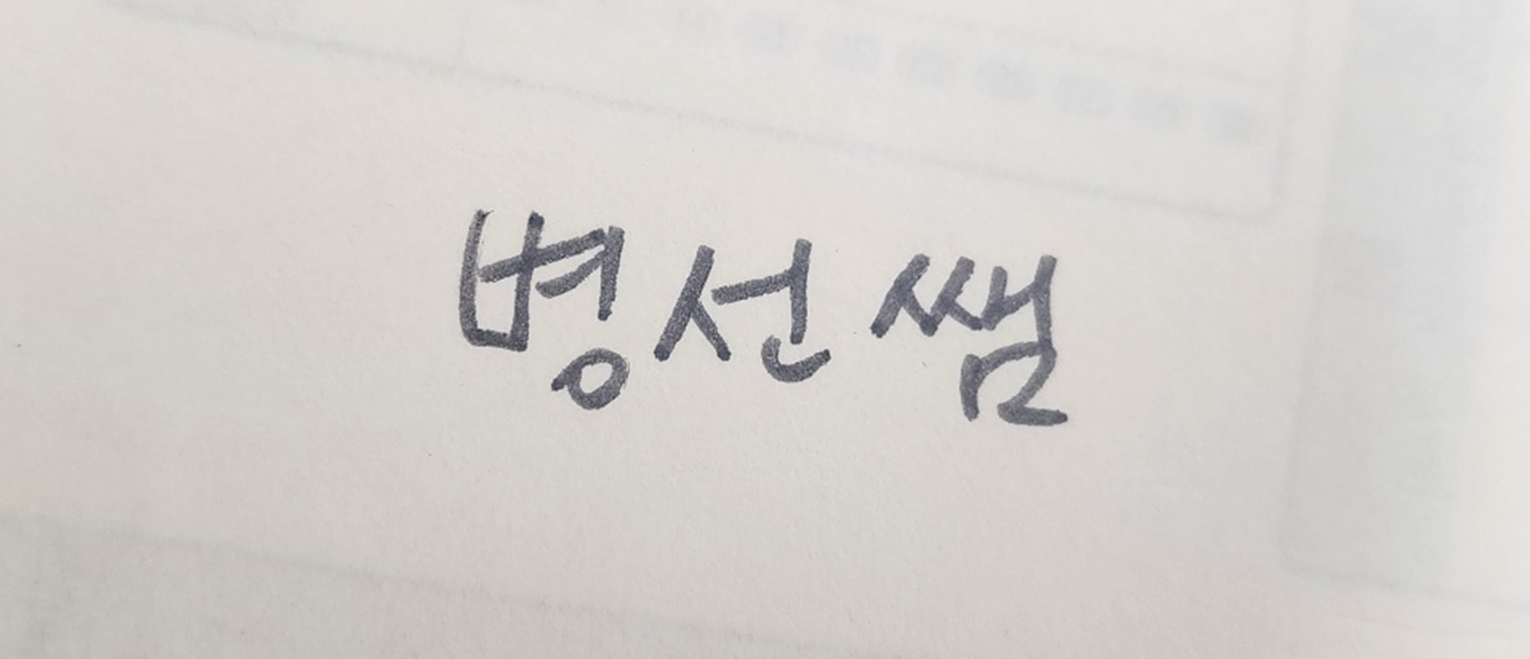 병선쌤